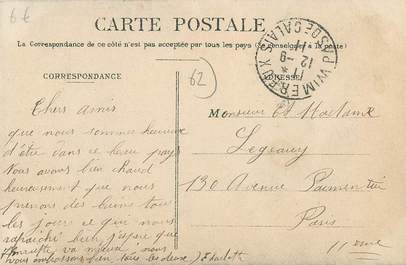 6€
CARTE POSTALE
La Correspondance de ce côté n'est pas acceptée par tous les pays (Se renseigner à la poste)
CORRESPONDANCE
ADRESSE
WIMEREUX PAS DE CALAIS
12 -9
11
62
Chers amis
que nous sommes heureux
d'être dans ce beau pays
vous avez bien chaud
heureusement que nous
prenons des bains tous
les jours ce qui nous
rafraichi bien j'espère que
va mieux nous
vous embrassons bien tous les deux Charlotte
Monsieur et Madame
Legeany
130 Avenue Parmentier
Paris
11eme